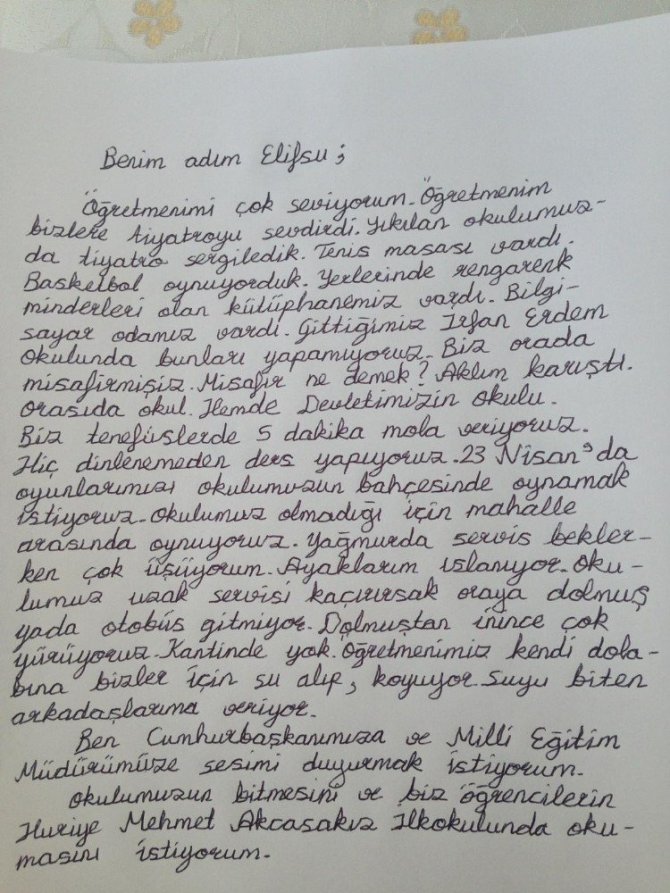 Benim adım Elifsu;
Öğretmenimi çok seviyorum. Öğretmenim
bizlere tiyatroyu sevdirdi. Yıkılan okulumuz-
da tiyatro sergiledik. Tenis masası vardı.
Basketbol oynuyorduk. Yerlerinde rengarenk
minderleri olan kütüphanemiz vardı. Bilgi-
sayar odamız vardı. Gittiğimiz İrfan Erdem
okulunda bunları yapamıyoruz. Biz orada
misafirmişiz. Misafir ne demek? Aklım karıştı.
orasıda okul. Hemde Devletimizin okulu.
Biz tenefüslerde 5 dakika mola veriyoruz.
Hiç dinlenemeden ders yapıyoruz. 23 Nisan'da
oyunlarımızı okulumuzun bahçesinde oynamak
istiyoruz. okulumuz olmadığı için mahalle
arasında oynuyoruz. Yağmurda servis bekler-
ken çok üşüyorum. Ayaklarım ıslanıyor. Oku-
lumuz uzak servisi kaçırırsak oraya dolmuş
yada otobüs gitmiyor. Dolmuştan inince çok
yürüyoruz. Kantinde yok. Öğretmenimiz kendi dola-
bına bizler için su alıp, koyuyor. Suyu biten
arkadaşlarıma veriyor.
Ben Cumhurbaşkanımıza ve Milli Eğitim
Müdürümüze sesimi duyurmak istiyorum.
okulumuzun bitmesini ve biz öğrencilerin
Huriye Mehmet Akcasakız İlkokulunda oku-
masını istiyorum.